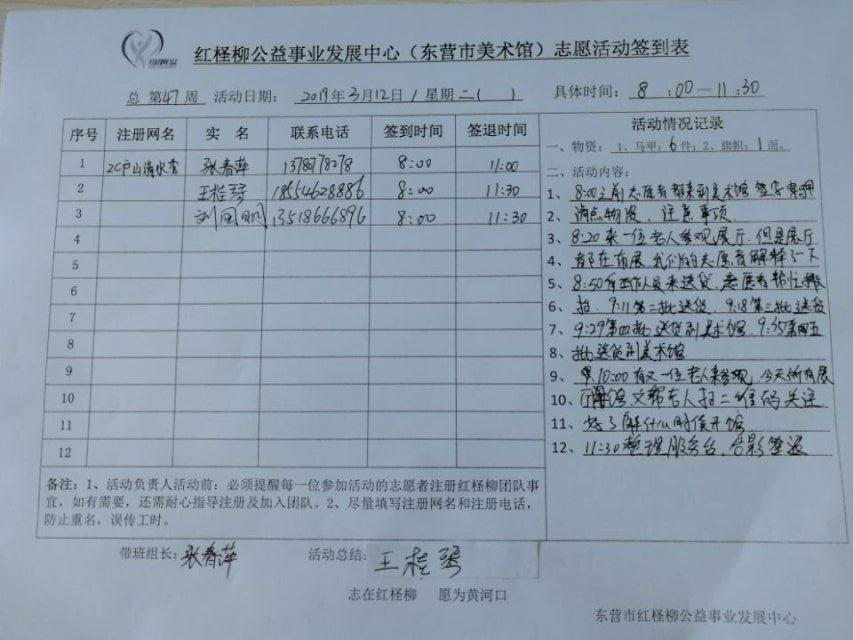 红柽柳公益事业发展中心（东营市美术馆）志愿活动签到表
总 第47周 活动日期： 2019年3月12日/星期二( ) 具体时间： 8:00—11:30
序号 注册网名 实 名 联系电话 签到时间 签退时间
1 张春萍 8:00 11:00
2 王桂琴 18554628886 8:00 11:30
3 13518666896 8:00 11:30
4
5
6
7
8
9
10
11
12
活动情况记录
一、物资：1、马甲：6件；2、旗帜：1面。
二、活动内容：
1、8:00之前志愿者都来到美术馆
2、清点物资、注意事项
3、8:20来一位老人参观展厅，但是展厅
4、都在布展，我们的志愿者解释了一下
5、8:50有工作人员来送货，志愿者
6、9:11第二批送货，9:18第三批送货
7、9:29第四批送货到美术馆，9:35第五
8、批送货到美术馆
9、10:00有又一位老人来参观，今天所有展
10、老人扫二维码关注
11、了解什么时候开馆
12、11:30整理服务台，合影签退
备注：1、活动负责人活动前：必须提醒每一位参加活动的志愿者注册红柽柳团队事
宜，如有需要，还需耐心指导注册及加入团队。2、尽量填写注册网名和注册电话，
防止重名，误传工时。
带班组长：张春萍 活动总结：王桂琴
志在红柽柳 愿为黄河口
东营市红柽柳公益事业发展中心